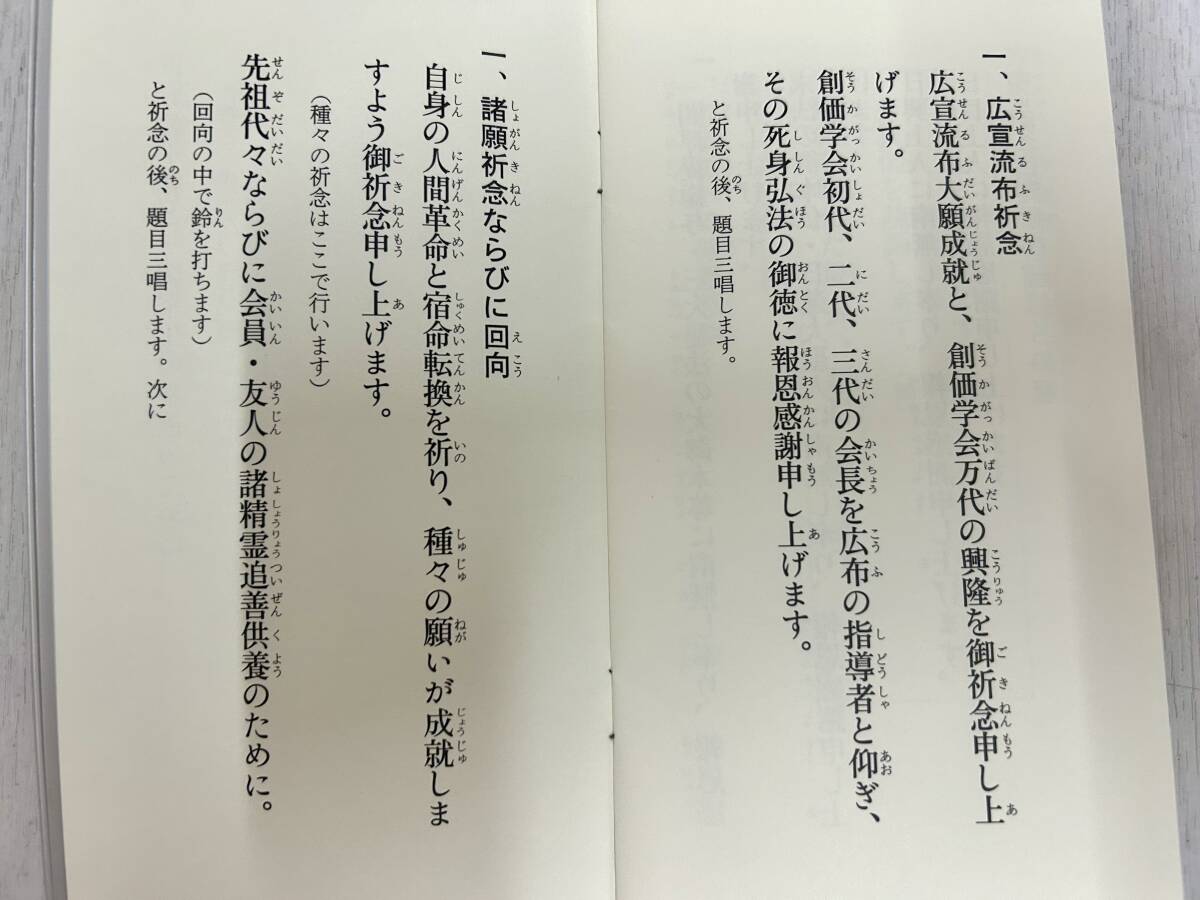 一、広宣流布祈念
広宣流布大願成就と、創価学会万代の興隆を御祈念申し上
げます。
創価学会初代、二代、三代の会長を広布の指導者と仰ぎ、
その死身弘法の御徳に報恩感謝申し上げます。
と祈念の後、題目三唱します。
一、諸願祈念ならびに回向
自身の人間革命と宿命転換を祈り、種々の願いが成就しま
すよう御祈念申し上げます。
（種々の祈念はここで行います）
先祖代々ならびに会員・友人の諸精霊追善供養のために。
（回向の中で鈴を打ちます）
と祈念の後、題目三唱します。次に